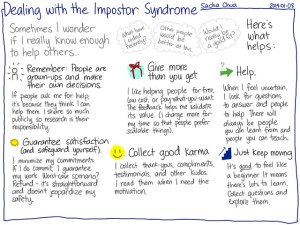 Dealing with the Impostor Syndrome
Sacha Chua
Sometimes I wonder
if I really know enough
to help others...
What have I failed
recently?
Other people
would be
better at this.
Would it
really
a
Here's
what
helps:
Remember: People are
grown-ups and make
their own decisions.
If people ask me for help,
it's because they think I can
help them. I share so much
publicly, so research is their
responsibility.
Give more
than you get.
I like helping people for free,
low cost, or pay-what-you-want.
The feedback helps me validate
its value. (I charge more for
my time so that people prefer
scalable things).
Help.
When I feel uncertain,
I ask for questions
to answer and people
to help. There will
always be people
you can learn from
and people you
can teach.
Guarantee satisfaction
(and safeguard yourself).
I minimize my commitments.
If I do commit, I guarantee
my work. Worst-case scenario?
Refund - it's straightforward
and doesn't jeopardize my
safety.
Collect good karma
I collect thank-yous, compliments,
testimonials, and other kudos.
I read them when I need the
motivation.
Just keep moving
It's good to feel like
a beginner. It means
there's lots to learn.
Collect questions and
explore them.